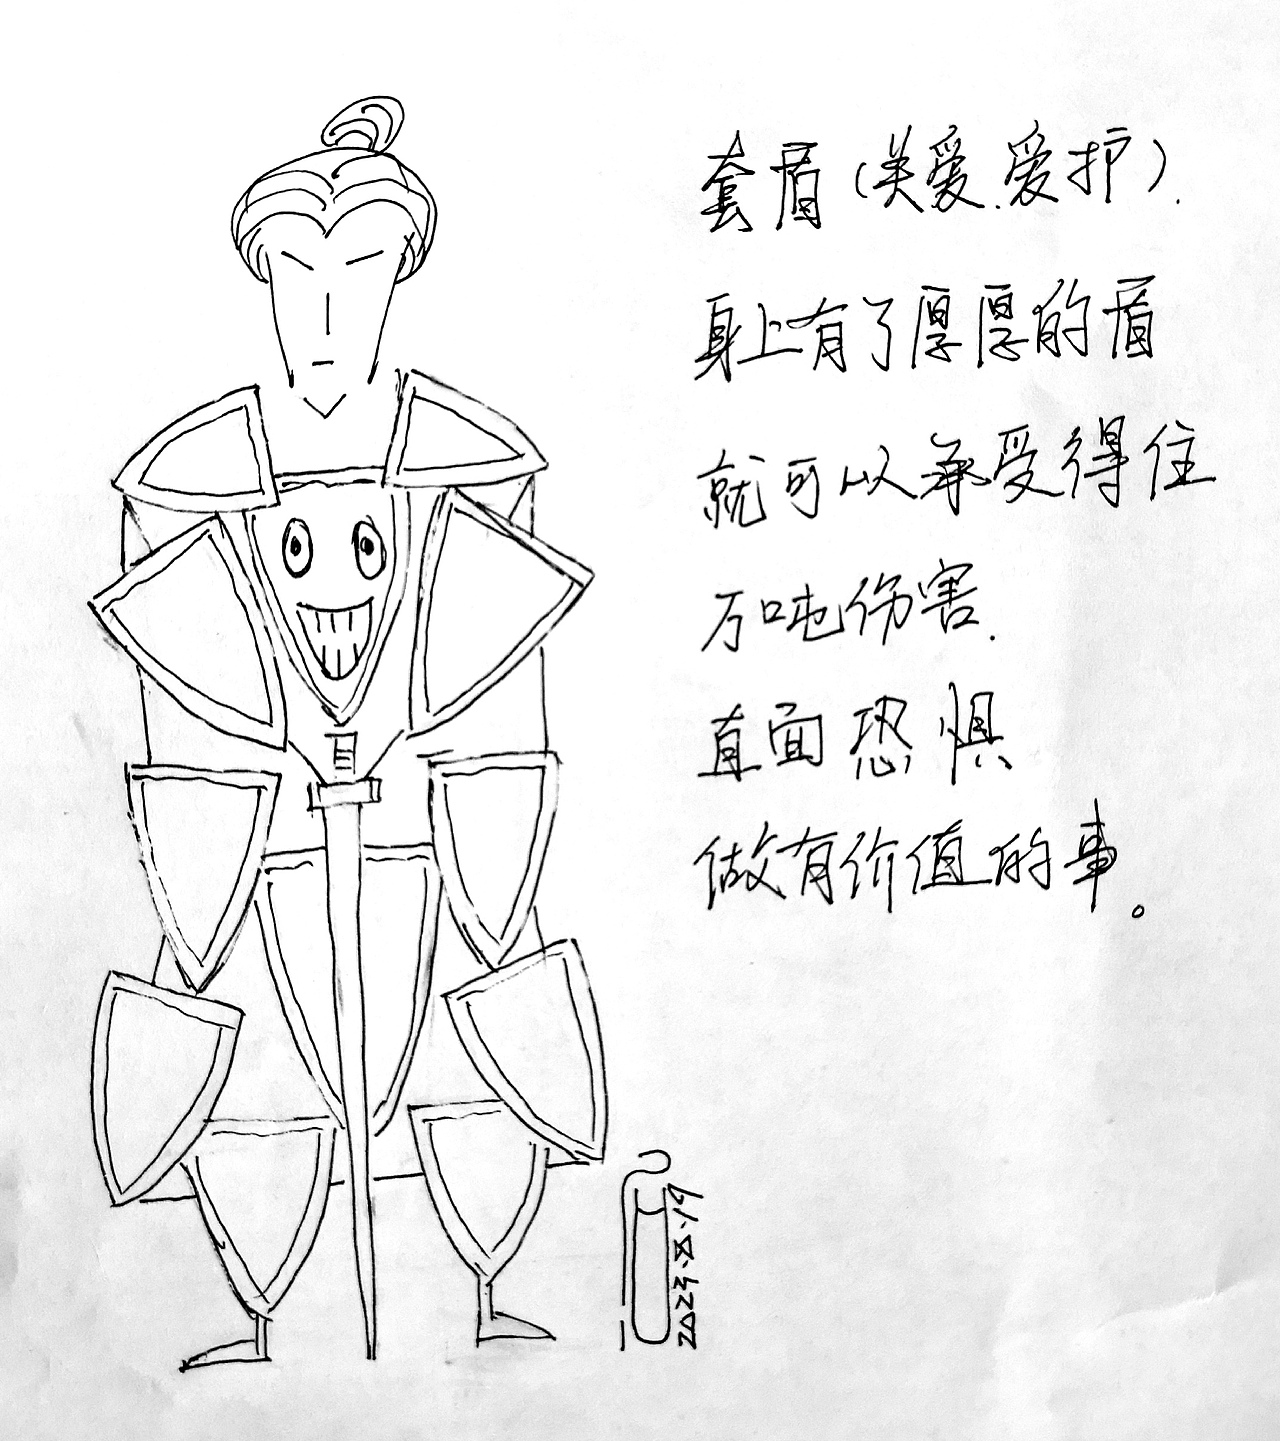 套盾(关爱.爱护).
身上有了厚厚的盾
就可以承受得住
万吨伤害.
直面恐惧
做有价值的事。